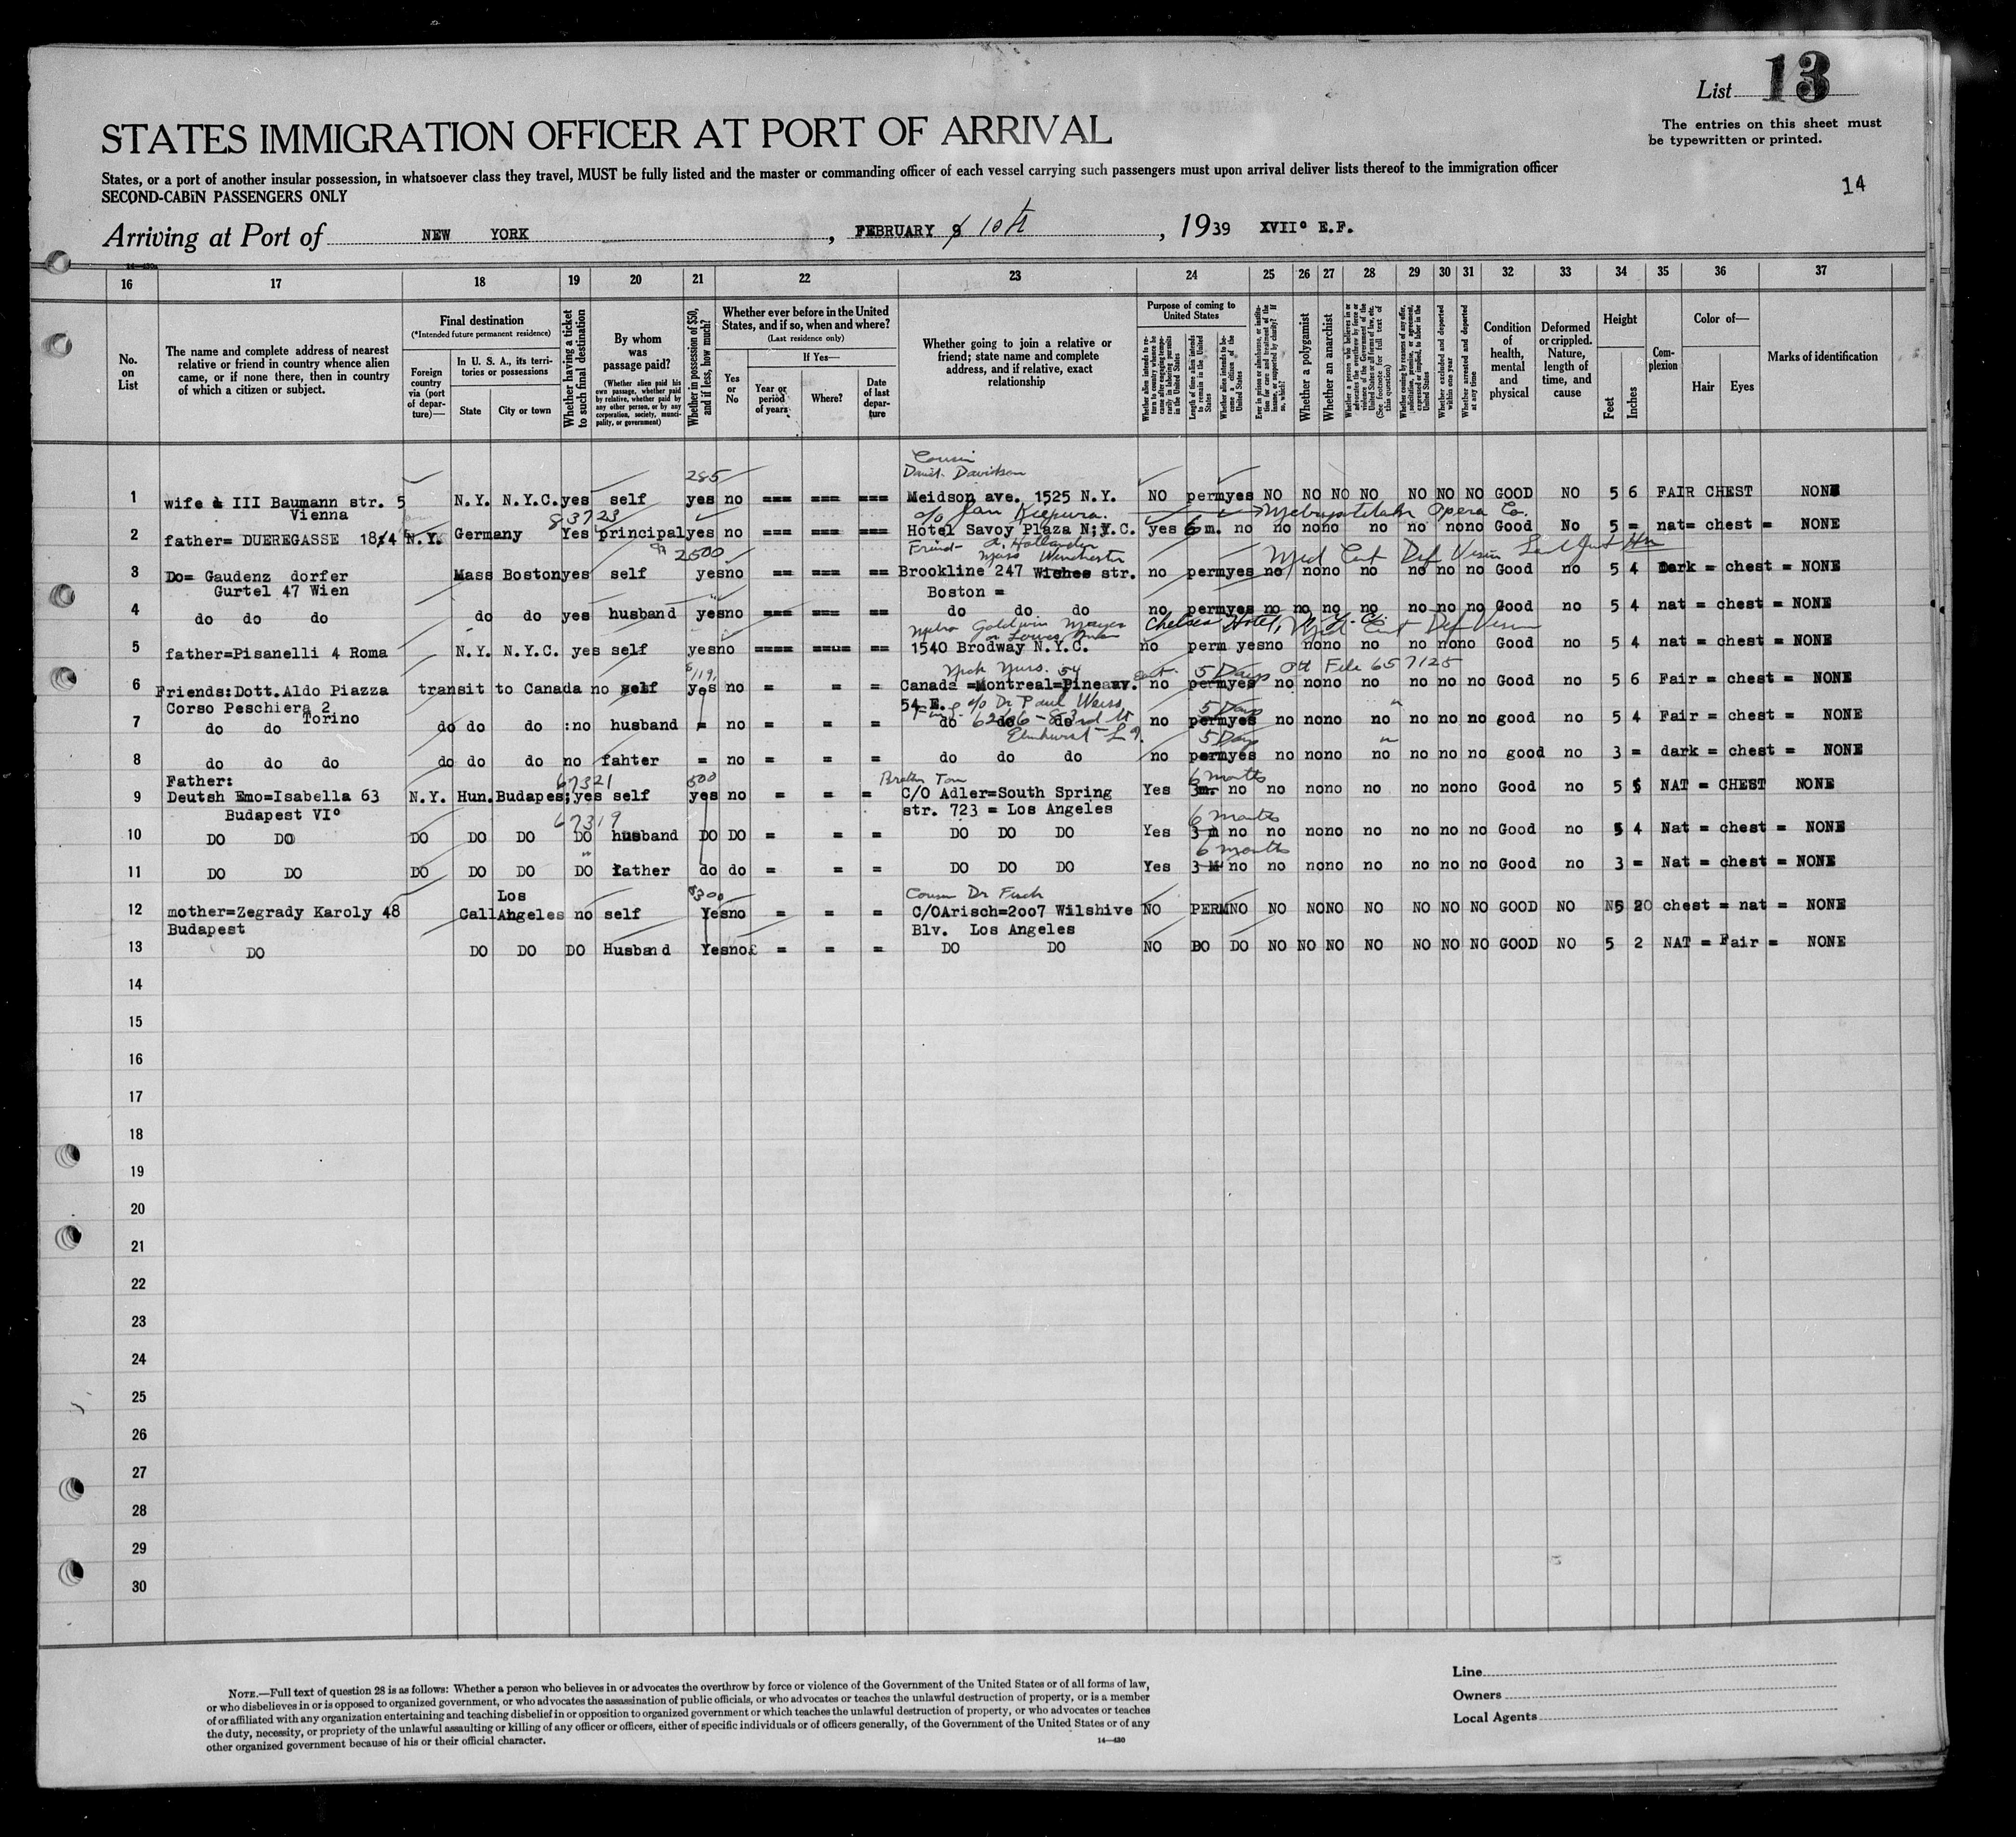 List 13
The entries on this sheet must
be typewritten or printed.
14
STATES IMMIGRATION OFFICER AT PORT OF ARRIVAL
States, or a port of another insular possession, in whatsoever class they travel, MUST be fully listed and the master or commanding officer of each vessel carrying such passengers must upon arrival deliver lists thereof to the immigration officer
SECOND-CABIN PASSENGERS ONLY
Arriving at Port of NEW YORK, FEBRUARY 9 10th, 1939 XVII° E.F.
16 17 18 19 20 21 22 23 24 25 26 27 28 29 30 31 32 33 34 35 36 37
No. on List
The name and complete address of nearest relative or friend in country whence alien came, or if none there, then in country of which a citizen or subject.
Final destination
(*Intended future permanent residence)
Foreign country via (port of departure)—
In U. S. A., its territories or possessions
State
City or town
Whether having a ticket to such final destination
By whom was passage paid?
(Whether alien paid his own passage, whether paid by relative, whether paid by any other person, or by any corporation, society, municipality, or government)
Whether in possession of $50, and if less, how much?
Whether ever before in the United States, and if so, when and where?
(Last residence only)
Yes or No
If Yes—
Year or period of years
Where?
Date of last departure
Whether going to join a relative or friend; state name and complete address, and if relative, exact relationship
Purpose of coming to United States
Length of time alien intends to remain in the United States
Whether alien intends to become a citizen of the United States
Whether a polygamist
Whether an anarchist
Whether excluded and deported within one year
Whether arrested and deported at any time
Condition of health, mental and physical
Deformed or crippled. Nature, length of time, and cause
Height
Feet
Inches
Complexion
Color of—
Hair
Eyes
Marks of identification
285 Cousin
David Davidson
1 wife & III Baumann str. 5 N.Y. N.Y.C. yes self yes no === === === Meidson ave. 1525 N.Y. NO perm yes NO NO NO NO NO NO NO GOOD NO 5 6 FAIR CHEST NONE
Vienna 83723 c/o Jan Kiepura. Metropolitan Opera Co.
2 father= DUEREGASSE 18/4 N.Y. Germany Yes principal yes no === === === Hotel Savoy Plaza N;Y.C. yes 6 m. no no no no no no no no Good No 5 = nat= chest = NONE
2500 Friend A. Hollander
Mass Winchester Med Cert Def Vision
3 Do= Gaudenz dorfer Mass Boston yes self yes no == === == Brookline 247 str. no perm yes no no no no no no no Good no 5 4 Dark = chest = NONE
Gurtel 47 Wien Boston =
4 do do do do do yes husband yes no === === == do do do no perm yes no no no no no no no Good no 5 4 nat = chest = NONE
Metro Goldwin Mayer Chelsea Hotel, N.Y.C. Med Cert Def Vision
5 father=Pisanelli 4 Roma N.Y. N.Y.C. yes self yes no ==== ==== == 1540 Brodway N.Y.C. no perm yes no no no no no no no Good no 5 4 nat = chest = NONE
$119. 54 5 Days File 657125
6 Friends:Dott.Aldo Piazza transit to Canada no self yes no = = = Canada =Montreal=Pine av. no perm yes no no no no no no no Good no 5 6 Fair = chest = NONE
Corso Peschiera 2 54 E. c/o Dr Paul Weiss, 5 Days
Torino
7 do do do do do :no husband = no = = = do do do 83rd St no perm yes no no no no no no no good no 5 4 Fair = chest = NONE
Elmhurst L I. 5 Days
8 do do do do do do no fahter = no = = = do do do no perm yes no no no no no no no good no 3 = dark = chest = NONE
Father: 67321 500 Brother Tom 6 months
9 Deutsh Emo=Isabella 63 N.Y. Hun. Budapes; yes self yes no = = = C/O Adler=South Spring Yes 3m. no no no no no no no no Good no 5 5 NAT = CHEST NONE
Budapest VI° 67319 str. 723 = Los Angeles 6 months
10 DO DO DO DO DO DO husband DO DO = = = DO DO DO Yes 3 m no no no no no no no no Good no 5 4 Nat = chest = NONE
6 months
11 DO DO DO DO DO DO father do do = = = DO DO DO Yes 3 M no no no no no no no no Good no 3 = Nat = chest = NONE
Los $300 Cousin Dr
12 mother=Zegrady Karoly 48 Call Angeles no self Yes no = = = C/OArisch=2oo7 Wilshive NO PERM NO NO NO NO NO NO NO NO GOOD NO chest = nat = NONE
Budapest Blv. Los Angeles
13 DO DO DO DO Husband Yes no = = = DO DO NO DO DO NO NO NO NO NO NO NO GOOD NO 5 2 NAT = Fair = NONE
14
15
16
17
18
19
20
21
22
23
24
25
26
27
28
29
30
NOTE.—Full text of question 28 is as follows: Whether a person who believes in or advocates the overthrow by force or violence of the Government of the United States or of all forms of law,
or who disbelieves in or is opposed to organized government, or who advocates the assassination of public officials, or who advocates or teaches the unlawful destruction of property, or is a member
of or affiliated with any organization entertaining and teaching disbelief in or opposition to organized government or which teaches the unlawful destruction of property, or who advocates or teaches
the duty, necessity, or propriety of the unlawful assaulting or killing of any officer or officers, either of specific individuals or of officers generally, of the Government of the United States or of any
other organized government because of his or their official character.
14—430
Line
Owners
Local Agents